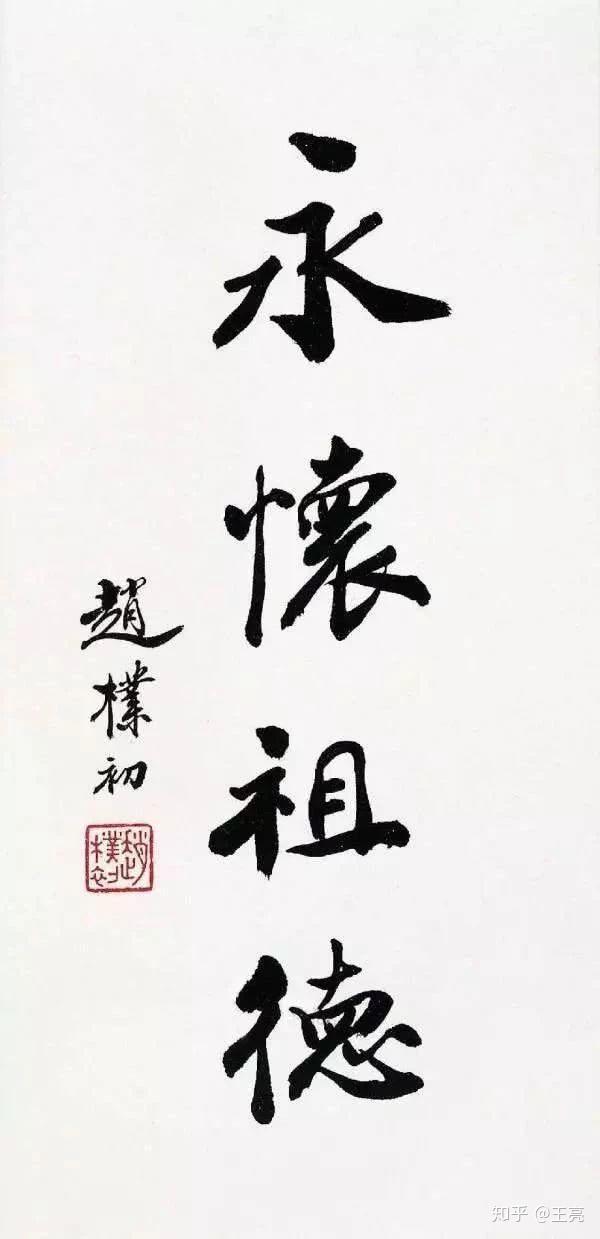 永懷祖德
趙樸初
趙樸初
知乎 @王亮